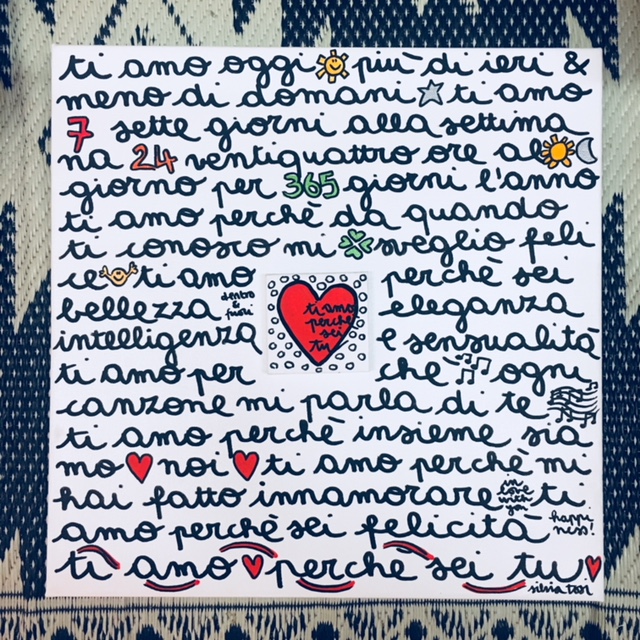 ti amo oggi più di ieri &
meno di domani ti amo
7 sette giorni alla settima
na 24 ventiquattro ore al
giorno per 365 giorni l'anno
ti amo perchè da quando
ti conosco mi sveglio feli
ce ti amo perchè sei
bellezza dentro & fuori eleganza
intelligenza e sensualità
ti amo perche
sei
tu
ti amo per chè ogni
canzone mi parla di te
ti amo perchè insieme sia
mo noi ti amo perchè mi
hai fatto innamorare in love with you ti
amo perchè sei felicità happi ness!
ti amo perchè sei tu
silvia